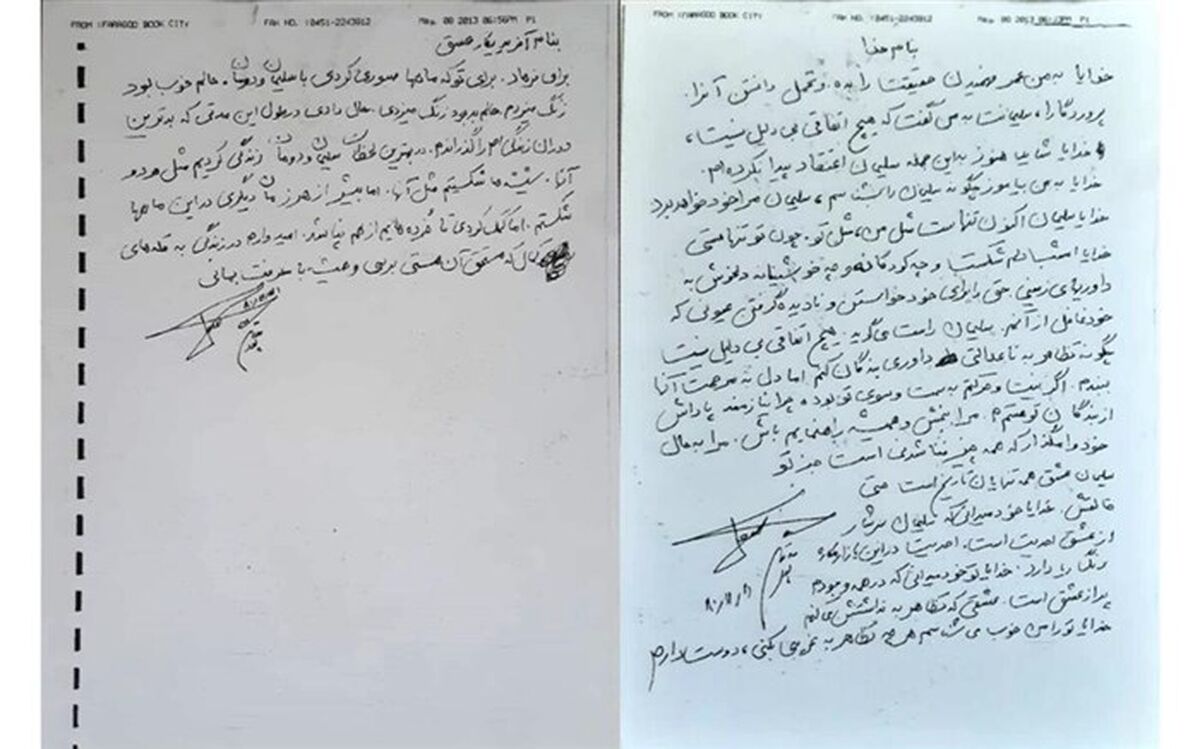 FROM :FARAGOD BOOK CITY FAX NO. :0451-2243812 May. 08 2013 06:56PM P1
بنام آفریدگار عشق
برای فرهاد. برای تو که ماهها صبوری کردی با سلیمان و دومان. حالم خوب بود
زنگ میزدم. حالم بد بود زنگ میزدی. حال دادی در طول این مدتی که بدترین
دوران زندگی‌ام را گذراندم. در بهترین لحظات سلیمان و دومان زندگی کردیم مثل هر دو
آنها. شیشه ما شکستیم مثل آنها. اما بیشتر از هر زمان دیگری در این ماهها
شکستم. اما کمک کردی تا خرده‌هایم از هم نپاشند. امیدوارم در زندگی به قله‌های
کمال که مستحق آن هستی برسی و همیشه با معرفت بمانی
FROM :FARAGOD BOOK CITY FAX NO. :0451-2243812 May. 08 2013 06:23PM P1
بنام خدا
خدایا به من عمر فهمیدن حقیقت را بده. و تحمل دانستن آنرا.
پروردگارا، سلیمانت به من گفت که هیچ اتفاقی بی دلیل نیست،
خدایا شاید هنوز به این جمله سلیمان اعتقاد پیدا نکرده‌ام.
خدایا به من بیاموز چگونه سلیمان را بشناسم، سلیمان مرا خود خواهد برد
خدایا سلیمان اکنون تنهاست مثل من، مثل تو. چون تو تنها هستی
خدایا امشب دلم شکست و چه کودکانه و چه خوشبینانه دلخوش به
داوریهای زمینی حتی را برای خود خواستن و نادیده گرفتن عیوبی که
خود غافل از آنم. سلیمان راست می‌گوید. هیچ اتفاقی بی دلیل نیست
چگونه تظاهر به ناعدالتی داوری بندگان کنم اما دل به مرحمت آنها
ببندم. اگر نیت و حرکتم به سمت و سوی تو بوده چرا نیازمند پاداش
از بندگان تو هستم. مرا ببخش و همیشه راهنمایم باش. مرا به حال
خود وامگذار که همه چیز فنا شدنی است جز تو
سلیمان عشق همه تنهایان تاریخ است حتی
خالقش. خدایا خود میدانی که سلیمان سرشار
از عشق احدیت است. احدیت در این بازار مکاره
رنگ ریا دارد. خدایا تو خود میدانی که در همه وجودم
پر از عشق است. عشقی که تظاهر به نداشتنش می‌کنم
خدایا تو را من خوب می‌شناسم هر چه تظاهر به بکنی، دوستت دارم